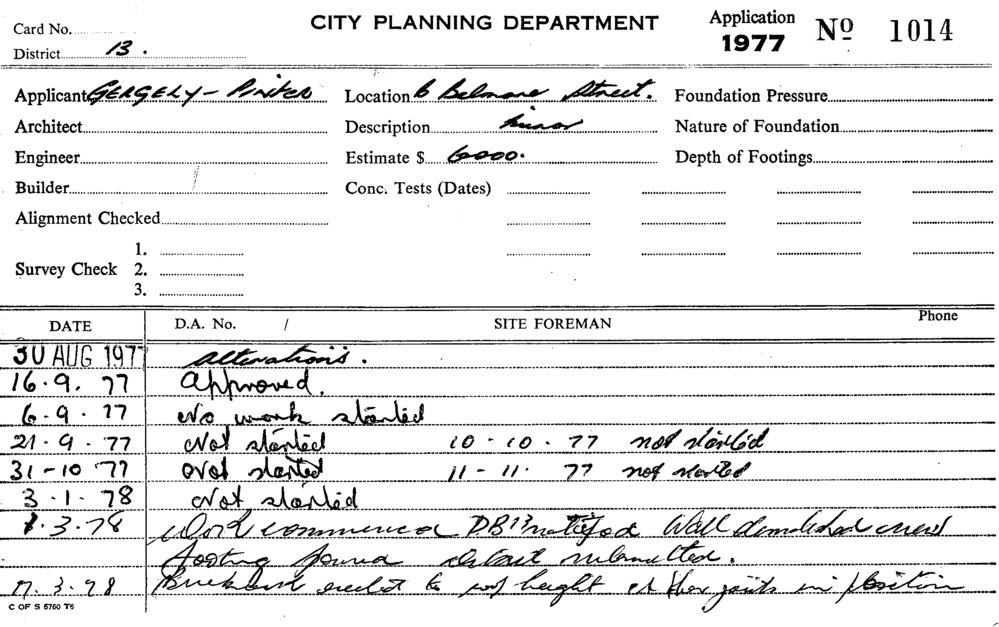 Card No. CITY PLANNING DEPARTMENT Application 1977 Nº 1014
District 13.
Applicant GERGELY - Pinter Location 6 Belmore Street. Foundation Pressure
Architect Description Minor Nature of Foundation
Engineer Estimate $ 6000. Depth of Footings
Builder Conc. Tests (Dates)
Alignment Checked
1.
Survey Check 2.
3.
DATE D.A. No. / SITE FOREMAN Phone
30 AUG 1977 alterations.
16.9.77 Approved.
6.9.77 No work started
21.9.77 Not started 10-10.77 not started
31-10 77 Not started 11-11.77 not started
3.1.78 Not started
1.3.78 Work commenced D.B notified Wall demolished
footing poured submitted.
17.3.78 Brickwork erected to height in position
C OF S 5760 T6